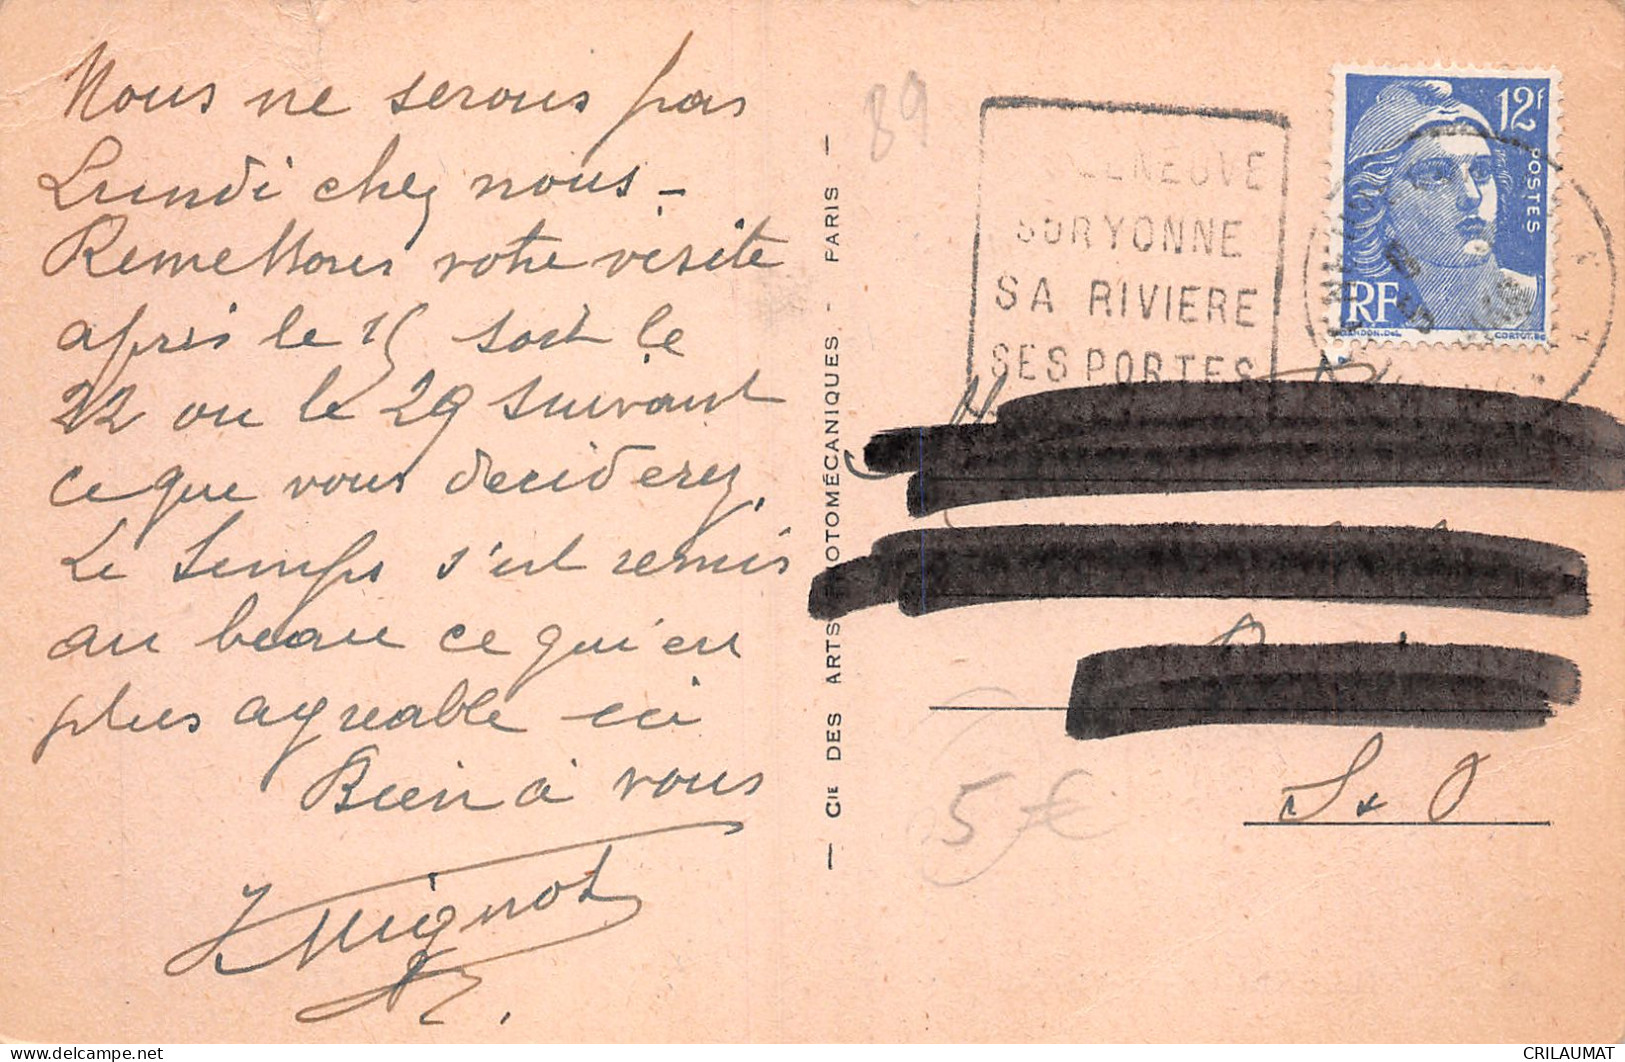 Nous ne serons pas
Lundi chez nous -
Remettons votre visite
après le 15 soit le
22 ou le 29 suivant
ce que vous deciderez.
Le temps s'est remis
au beau ce qui en
plus agreable ici
Bien à vous
Mignot
— CIE DES ARTS PHOTOMÉCANIQUES. - PARIS —
89
NEUVE
SUR YONNE
SA RIVIERE
SES PORTES
12F
POSTES
RF
GANDON.DEL
CORTOT.SC
S & O
5 €
www.delcampe.net
CRILAUMAT